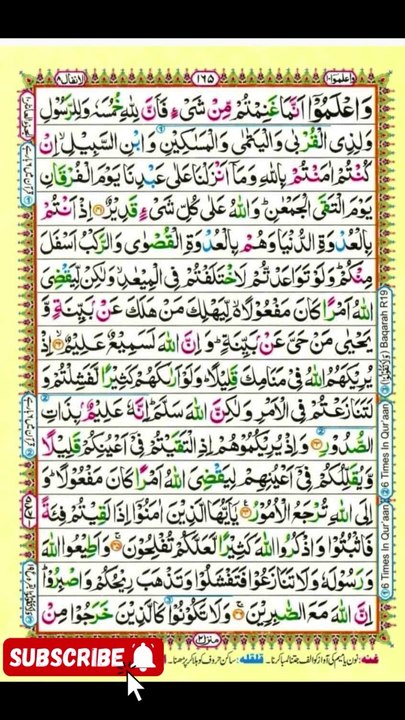 واعلموا ١٠
١٦٥
الانفال ٨
وَاعْلَمُوْۤا اَنَّمَا غَنِمْتُمْ مِّنْ شَیْءٍ فَاَنَّ لِلّٰهِ خُمُسَهٗ وَلِلرَّسُوْلِ
وَلِذِی الْقُرْبٰى وَالْیَتٰمٰى وَالْمَسٰكِیْنِ وَابْنِ السَّبِیْلِ اِنْ
كُنْتُمْ اٰمَنْتُمْ بِاللّٰهِ وَمَاۤ اَنْزَلْنَا عَلٰى عَبْدِنَا یَوْمَ الْفُرْقَانِ
یَوْمَ الْتَقَی الْجَمْعٰنِ ؕ وَاللّٰهُ عَلٰى كُلِّ شَیْءٍ قَدِیْرٌ ۝۴۱ اِذْ اَنْتُمْ
بِالْعُدْوَةِ الدُّنْیَا وَهُمْ بِالْعُدْوَةِ الْقُصْوٰى وَالرَّكْبُ اَسْفَلَ
مِنْكُمْ ؕ وَلَوْ تَوَاعَدْتُّمْ لَاخْتَلَفْتُمْ فِی الْمِیْعٰدِ ۙ وَلٰكِنْ لِّیَقْضِیَ
اللّٰهُ اَمْرًا كَانَ مَفْعُوْلًا ۙ لِّیَهْلِكَ مَنْ هَلَكَ عَنْۢ بَیِّنَةٍ وَّ
یَحْیٰى مَنْ حَیَّ عَنْۢ بَیِّنَةٍ ؕ وَاِنَّ اللّٰهَ لَسَمِیْعٌ عَلِیْمٌ ۝۴۲ اِذْ
یُرِیْكَهُمُ اللّٰهُ فِیْ مَنَامِكَ قَلِیْلًا ؕ وَلَوْ اَرٰىكَهُمْ كَثِیْرًا لَّفَشِلْتُمْ وَ
لَتَنَازَعْتُمْ فِی الْاَمْرِ وَلٰكِنَّ اللّٰهَ سَلَّمَ ؕ اِنَّهٗ عَلِیْمٌۢ بِذَاتِ
الصُّدُوْرِ ۝۴۳ وَاِذْ یُرِیْكُمُوْهُمْ اِذِ الْتَقَیْتُمْ فِیْۤ اَعْیُنِكُمْ قَلِیْلًا
وَّیُقَلِّلُكُمْ فِیْۤ اَعْیُنِهِمْ لِیَقْضِیَ اللّٰهُ اَمْرًا كَانَ مَفْعُوْلًا ؕ وَ
اِلَى اللّٰهِ تُرْجَعُ الْاُمُوْرُ ۝۴۴ یٰۤاَیُّهَا الَّذِیْنَ اٰمَنُوْۤا اِذَا لَقِیْتُمْ فِئَةً
فَاثْبُتُوْا وَاذْكُرُوا اللّٰهَ كَثِیْرًا لَّعَلَّكُمْ تُفْلِحُوْنَ ۝۴۵ وَاَطِیْعُوا اللّٰهَ
وَرَسُوْلَهٗ وَلَا تَنَازَعُوْا فَتَفْشَلُوْا وَتَذْهَبَ رِیْحُكُمْ وَاصْبِرُوْا ؕ
اِنَّ اللّٰهَ مَعَ الصّٰبِرِیْنَ ۝۴۶ وَلَا تَكُوْنُوْا كَالَّذِیْنَ خَرَجُوْا مِنْ
منزل ٢
Baqarah R19
② 6 Times In Qur'aan
① 6 Times In Qur'aan
غنہ: نون یا میم کی آواز کو الف جتنا لمبا کرنا۔ قلقلہ: ساکن حروف کو ہلا کر پڑھنا۔
SUBSCRIBE